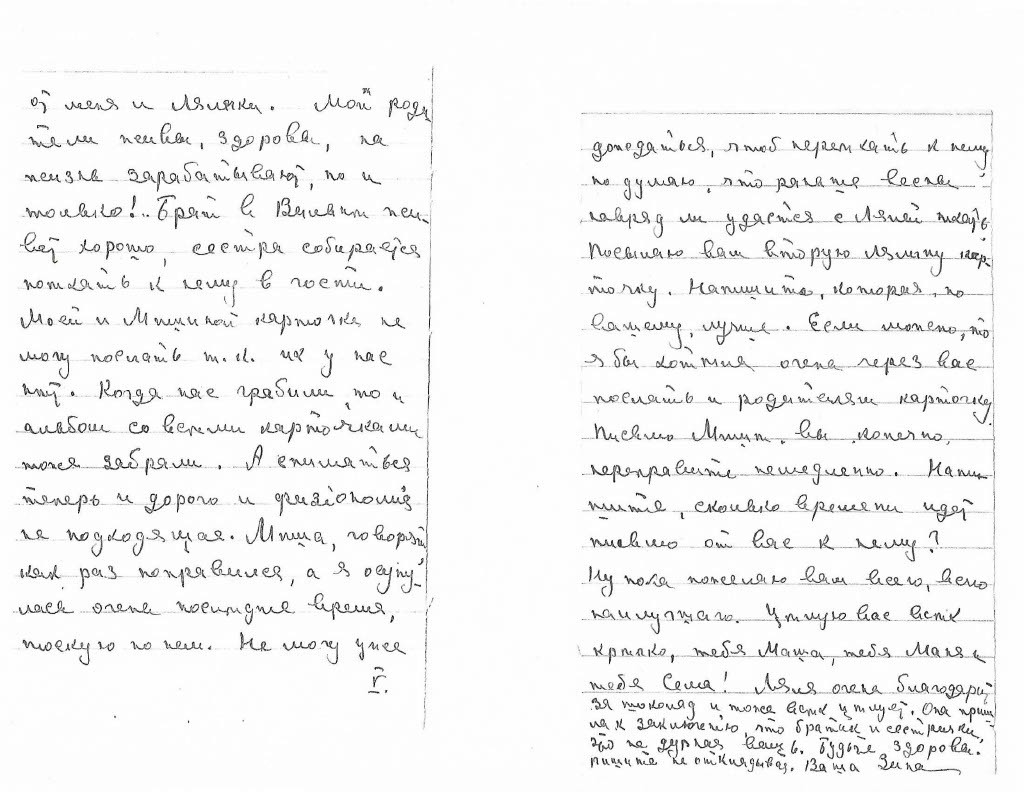 от меня и Лялички. Мои роди
тели живы, здоровы, на
жизнь зарабатывают, но и
только!.. Брат в Вильнѣ жи-
вет хорошо, сестра собирается
поѣхать к нему в гости.
Моей и Мишиной карточки не
могу послать т.к. их у нас
нѣт. Когда нас грабили, то и
альбом со всѣми карточками
тоже забрали. А сниматься
теперь и дорого и физіономія
не подходящая. Миша, говорят,
как раз поправился, а я осуну-
лась очень послѣднее время,
тоскую по нем. Не могу уже
дождаться, чтоб переѣхать к нему
но думаю, что раньше весны
навряд ли удастся с Лялей ѣхать.
Посылаю вам вторую Лялину кар-
точку. Напишите, которая, по
вашему, лучше. Если можно, то
я бы хотѣла очень через вас
послать и родителям карточку.
Письмо Мишѣ, вы, конечно,
переправите немедленно. Напи-
шите, сколько времени идет
письмо от вас к нему?
Ну пока пожелаю вам всего, всего
наилучшаго. Цѣлую вас всѣх
крѣпко, тебя Маша, тебя Маня и
тебя Сема! Ляля очень благодарит
за шоколад и тоже всѣх цѣлует. Она приш
ла к заключенію, что братик и сестрички,
это не дурная вещь. Будьте здоровы.
Пишите не откладывая. Ваша Зина